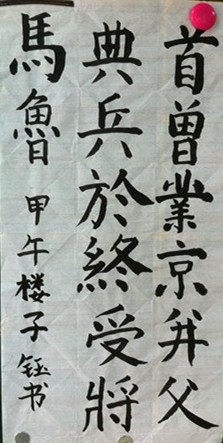 首曾業京弁父
典兵於終受將
馬魯 甲午楼子钰书